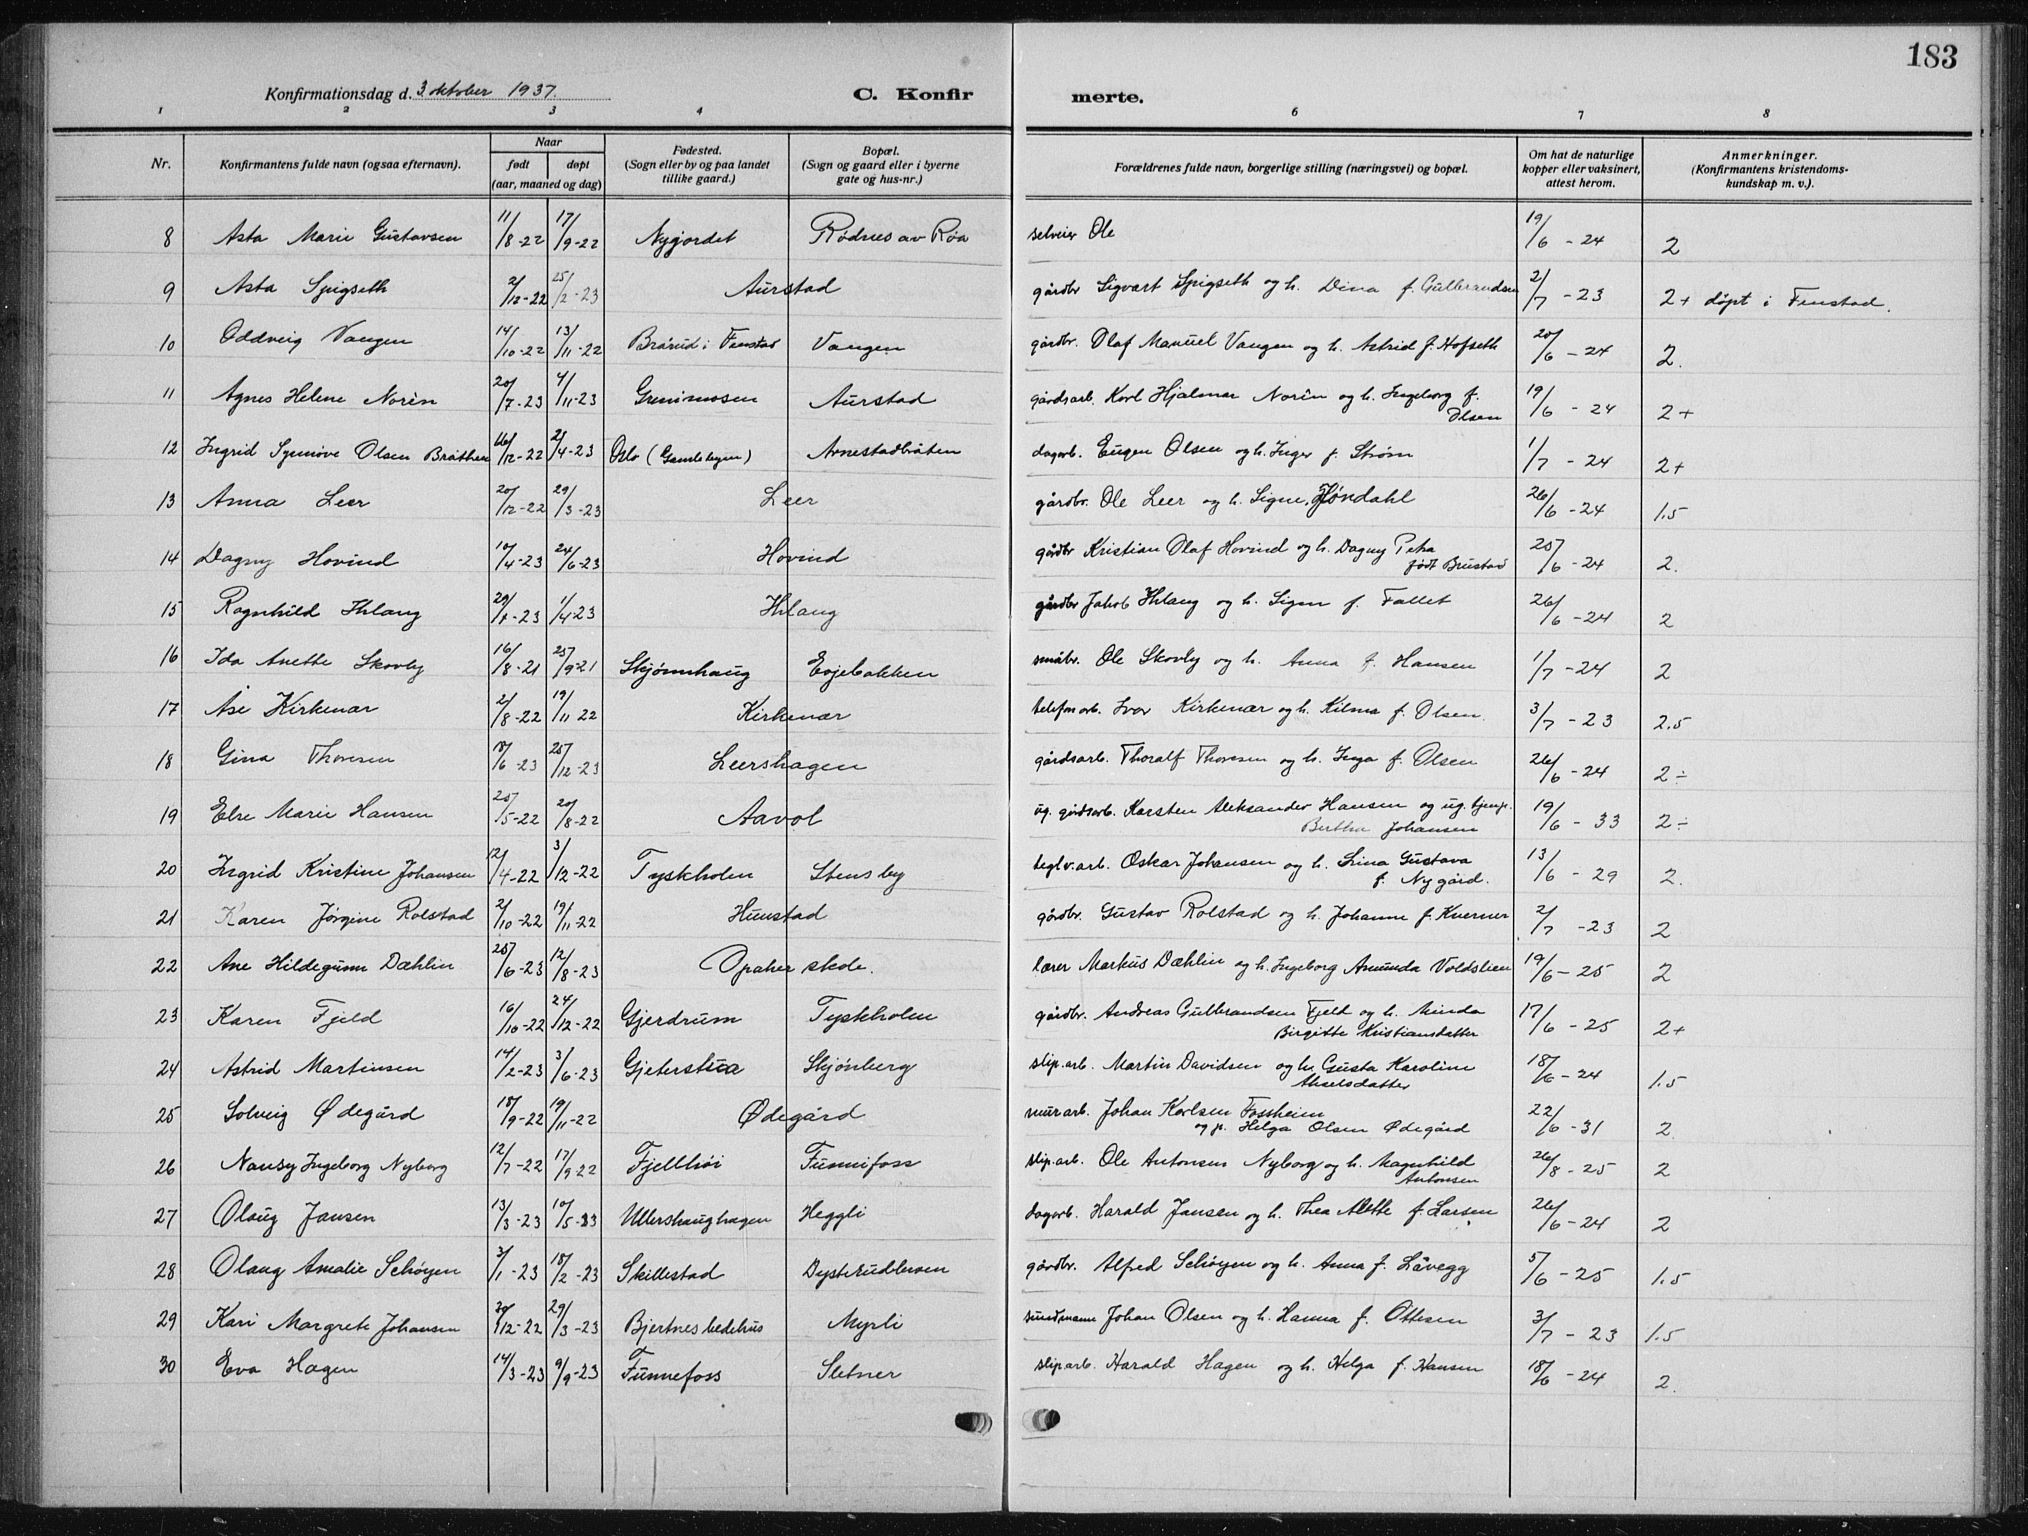 183
Konfirmationsdag d. 3 oktober 1937.
C. Konfirmerte.
1 2 3 4 6 7 8
Nr. Konfirmantens fulde navn (ogsaa efternavn). Naar født døpt (aar, maaned og dag) Fødested. (Sogn eller by og paa landet tillike gaard.) Bopæl. (Sogn og gaard eller i byerne gate og hus-nr.) Forældrenes fulde navn, borgerlige stilling (næringsvei) og bopæl. Om hat de naturlige kopper eller vaksinert, attest herom. Anmerkninger. (Konfirmantens kristendomskundskap m. v.).
8 Asta Marie Gustavsen 11/8-22 17/9-22 Nygjordet Rødnes av Røa selveier Ole 19/6-24 2
9 Asta Spigseth 2/12-22 25/2-23 Aurstad gårdbr Sigvart Spigseth og h. Dina f. Gulbrandsen 2/7-23 2+ døpt i Fenstad.
10 Oddveig Vangen 14/10-22 13/11-22 Brårud i Fenstad Vangen gårdbr. Olaf Manuel Vangen og h. Astrid f. Hofseth 20/6-24 2.
11 Agnes Helene Norèn 20/7-23 4/11-23 Grenimosen Aurstad gårdsarb. Karl Hjalmar Norèn og h. Ingeborg f. Olsen 19/6-24 2+
12 Ingrid Synnøve Olsen Bråthen 16/12-22 2/4-23 Oslo (Gamlebyen) Arnestadbråten dagarb. Eugen Olsen og h. Inger f. Strøm 1/7-24 2+
13 Anna Leer 20/12-22 29/3-23 Leer gårdbr. Ole Leer og h. Signe, Høndahl 26/6-24 1.5
14 Dagny Hovind 10/4-23 24/6-23 Hovind gårdbr Kristian Olaf Hovind og h. Dagny Petra født Brustad 25/6-24 2.
15 Ragnhild Ihlang 29/1-23 1/4-23 Ihlang gårdbr Jakob Ihlang og h. Signe f. Fallet 26/6-24 2
16 Ida Anette Skovly 16/8-21 25/9-21 Skjønnhaug Evjebakken småbr. Ole Skovly og h. Anna f. Hansen 1/7-24 2
17 Åse Kirkenær 2/8-22 19/11-22 Kirkenær telefonarb. Ivar Kirkenær og h. Kilma f. Olsen. 3/7-23 2.5
18 Gina Thoresen 18/6-23 25/12-23 Leershagen gårdsarb. Thoralf Thoresen og h. Inga f. Olsen 26/6-24 2÷
19 Else Marie Hansen 25/5-22 20/8-22 Aavol ug. gårdsarb. Karsten Aleksander Hansen og ug. tjenp. Bertha Johansen 19/6-33 2÷
20 Ingrid Kristine Johansen 12/4-22 3/12-22 Tyskholen Stensby teglv.arb. Oskar Johansen og h. Lina Gustava f. Nygård. 13/6-29 2.
21 Karen Jørgine Rolstad 2/10-22 19/11-22 Hunstad gårdbr. Gustav Rolstad og h. Johanne f. Kverner 2/7-23 2
22 Ane Hildegunn Dæhlin 25/6-23 12/8-23 Opaker skole. lærer Markus Dæhlin og h. Ingeborg Amunda Voldslien 19/6-25 2
23 Karen Fjeld 16/10-22 24/12-22 Gjerdrum Tyskholen gårdbr. Andreas Gulbrandsen Fjeld og h. Minda Birgitte Kristiansdatter 17/6-25 2+
24 Astrid Martinsen 14/2-23 3/6-23 Gjeterstua Skjønberg slip.arb. Martin Davidsen og h. Gusta Karoline Akselsdatter 18/6-24 1.5
25 Solveig Ødegård 18/9-22 19/11-22 Ødegård murarb. Johan Karlsen Fossheim og p. Helga Olsen Ødegård 22/6-31 2
26 Nansy Ingeborg Nyborg 12/7-22 17/9-22 Fjellhøi Funnefoss slip.arb. Ole Antonsen Nyborg og h. Magnhild Antonsen 26/8-25 2
27 Olaug Jansen 13/3-23 10/5-23 Ullershaughagen Heggli dagarb. Harald Jansen og h. Thea Alette f. Larsen 26/6-24 2
28 Olaug Amalie Schøyen 3/1-23 18/2-23 Skillestad gårdbr. Alfred Schøyen og h. Anna f. Låvegg 5/6-25 1.5
29 Kari Margrete Johansen 30/12-22 29/3-23 Bjertnes bedehus Myrli sundmann Johan Olsen og h. Hanna f. Ottesen 3/7-23 1.5
30 Eva Hagen 14/3-23 9/9-23 Funnefoss Sletner slip.arb. Harald Hagen og h. Helga f. Hansen 18/6-24 2.